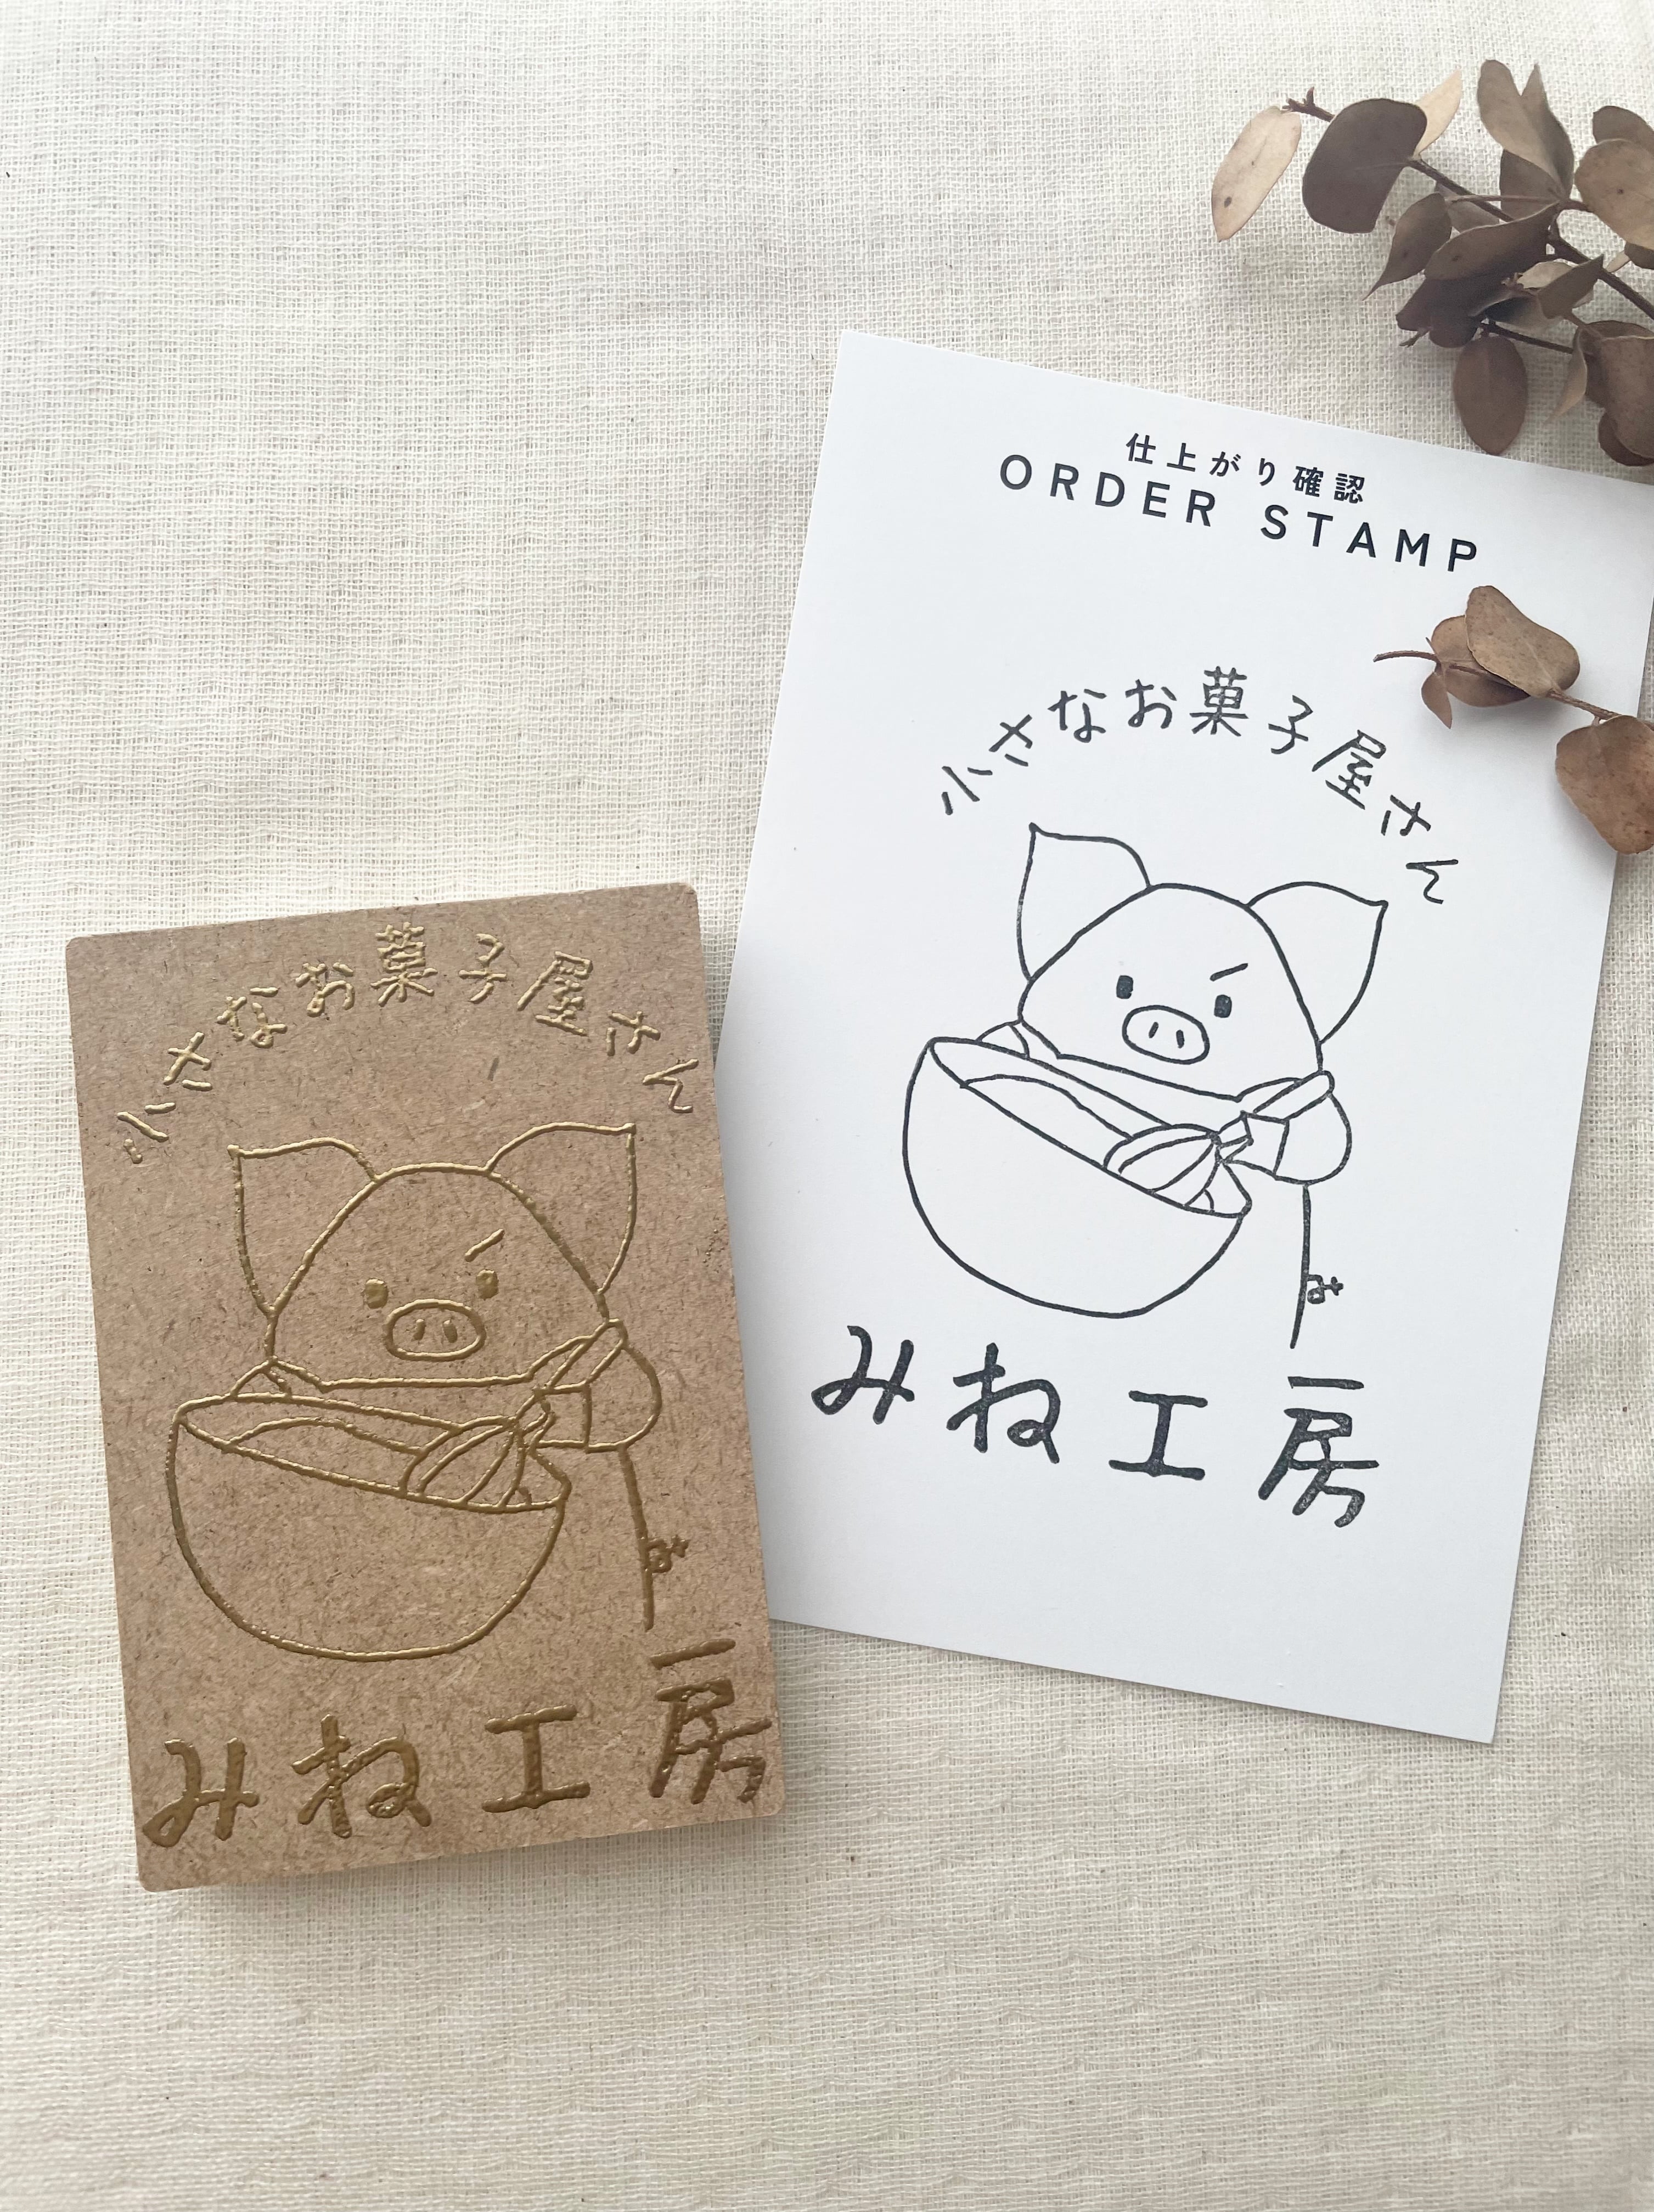 仕上がり確認
ORDER STAMP
小さなお菓子屋さん
みね工房
小さなお菓子屋さん
みね工房